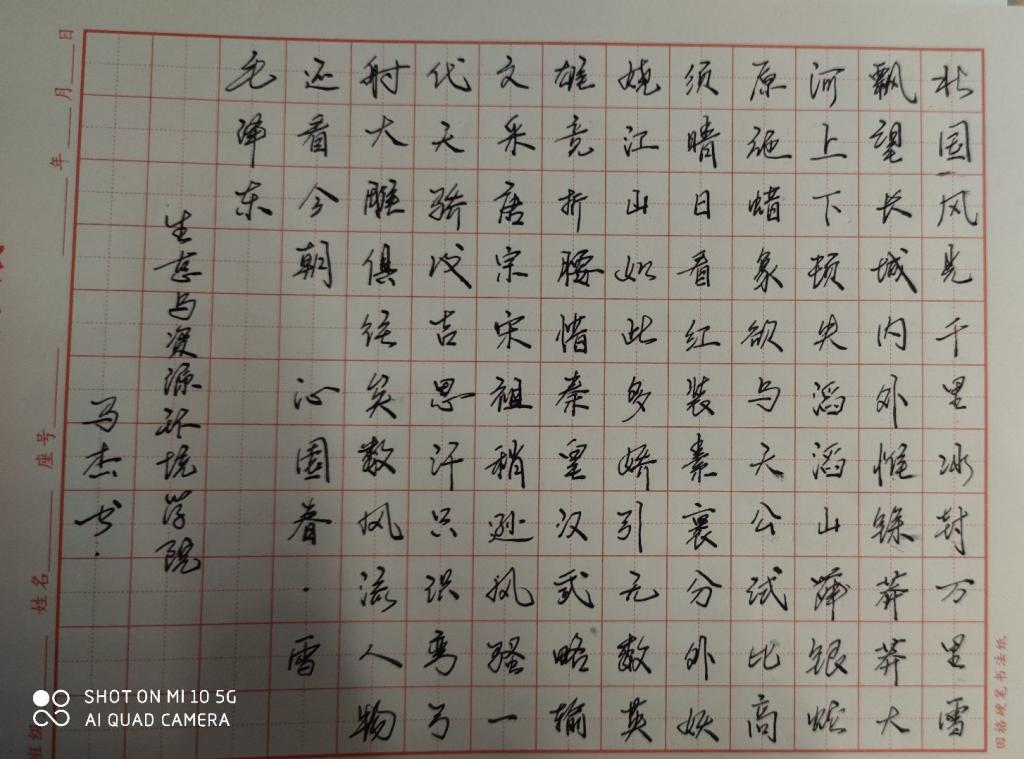 北国风光千里冰封万里雪
飘望长城内外惟馀莽莽大
河上下顿失滔滔山舞银蛇
原驰蜡象欲与天公试比高
须晴日看红装素裹分外妖
娆江山如此多娇引无数英
雄竞折腰惜秦皇汉武略输
文采唐宗宋祖稍逊风骚一
代天骄成吉思汗只识弯弓
射大雕俱往矣数风流人物
还看今朝 沁园春·雪
毛泽东
生态与资源环境学院
马杰书.
班级 姓名 座号 年 月 日
田格硬笔书法纸
SHOT ON MI 10 5G
AI QUAD CAMERA